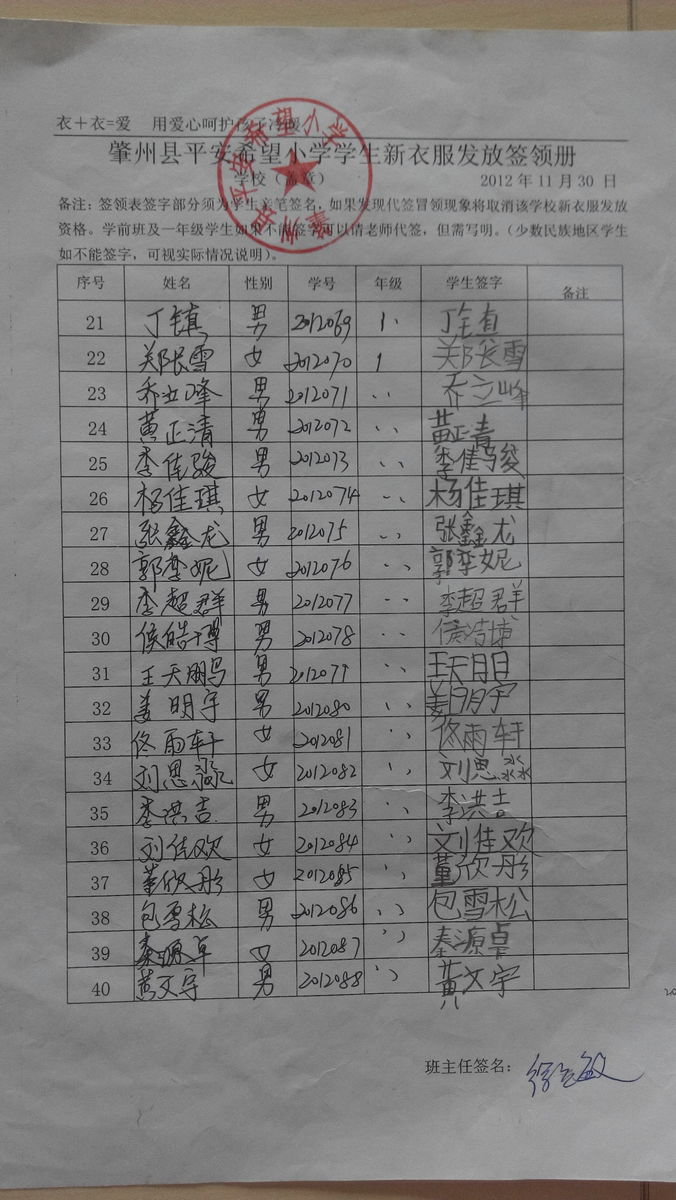 衣+衣=爱 用爱心呵护孩子冷暖
肇州县平安希望小学学生新衣服发放签领册
学校（盖章） 2012年11月30日
备注：签领表签字部分须为学生亲笔签名，如果发现代签冒领现象将取消该学校新衣服发放
资格。学前班及一年级学生如果不能签字可以请老师代签，但需写明。（少数民族地区学生
如不能签字，可视实际情况说明）。
序号 姓名 性别 学号 年级 学生签字 备注
21 丁镇 男 2012069 1、 丁镇
22 郑长雪 女 2012070 1 郑长雪
23 乔立峰 男 2012071 、、 乔立峰
24 黄正清 男 2012072 、、 黄正青
25 李佳骏 男 2012073 、、 李佳骏
26 杨佳琪 女 2012074 、、 杨佳琪
27 张鑫龙 男 2012075 、、 张鑫龙
28 郭李妮 女 2012076 、、 郭李妮
29 李超群 男 2012077 、、 李超群
30 侯皓博 男 2012078 、、 侯浩博
31 王天鹏 男 2012079 、、 王天
32 姜明宇 男 2012080 、、 姜明宇
33 佟雨轩 女 2012081 、、 佟雨轩
34 刘思淼 女 2012082 、、 刘思淼
35 李洪吉 男 2012083 、、 李洪吉
36 刘佳欢 女 2012084 、、 刘佳欢
37 董欣彤 女 2012085 、、 董欣彤
38 包雪松 男 2012086 、、 包雪松
39 秦源卓 女 2012087 、、 秦源卓
40 黄文宇 男 2012088 、、 黄文宇
班主任签名：